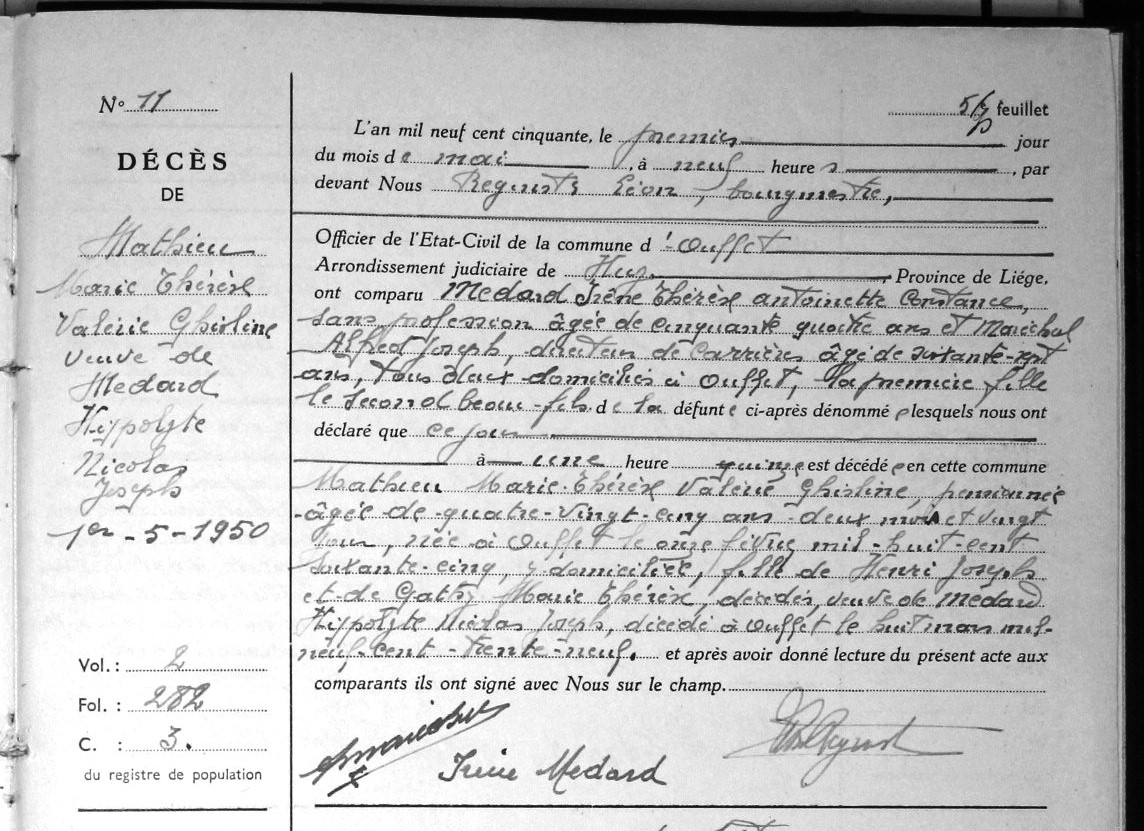 N° 11
DÉCÈS
DE
Mathieu
Marie Thérèse
Valérie Ghisline
veuve de
Medard
Hyppolyte
Nicolas
Joseph
1er - 5 - 1950
Vol. : 2
Fol. : 282
C. : 3.
du registre de population
feuillet
L'an mil neuf cent cinquante, le premier jour
du mois de mai, à neuf heures, par
devant Nous Léon, bourgmestre,
Officier de l'Etat-Civil de la commune d'Ouffet
Arrondissement judiciaire de Huy, Province de Liége,
ont comparu Medard Irène Thérèse Antoinette Constance,
sans profession âgée de cinquante quatre ans et Maréchal
Alfred Joseph, directeur de carrières âgé de soixante-sept
ans, tous deux domiciliés à Ouffet, la première fille
le second beau-fils de la défunte ci-après dénommée lesquels nous ont
déclaré que ce jour
à une heure quinze est décédée en cette commune
Mathieu Marie-Thérèse Valérie Ghisline, pensionnée
âgée de quatre-vingt-cinq ans deux mois et vingt
jour, née à Ouffet le onze février mil-huit-cent
soixante-cinq, y domiciliée, fille de Henri Joseph
et de Marie Thérèse, décédés, veuve de Medard
Hyppolyte Nicolas Joseph, décédé à Ouffet le huit mars mil-
neuf-cent-trente-neuf. et après avoir donné lecture du présent acte aux
comparants ils ont signé avec Nous sur le champ.
Irène Medard